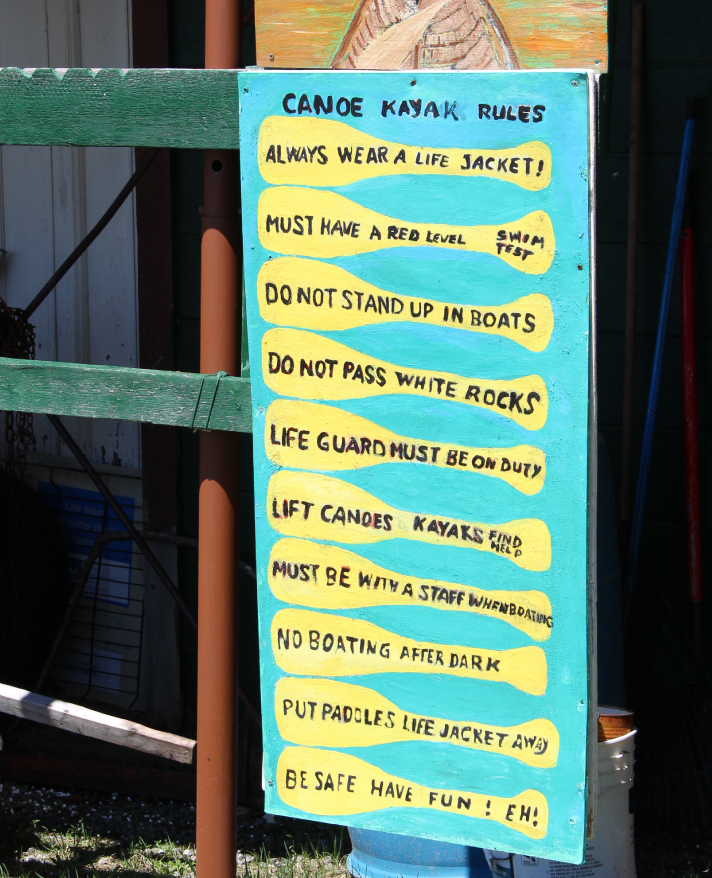 CANOE KAYAK RULES
ALWAYS WEAR A LIFE JACKET!
MUST HAVE A RED LEVEL SWIM TEST
DO NOT STAND UP IN BOATS
DO NOT PASS WHITE ROCKS
LIFE GUARD MUST BE ON DUTY
LIFT CANOES KAYAKS FIND HELP
MUST BE WITH A STAFF WHEN BOATING
NO BOATING AFTER DARK
PUT PADDLES LIFE JACKET AWAY
BE SAFE HAVE FUN ! EH!